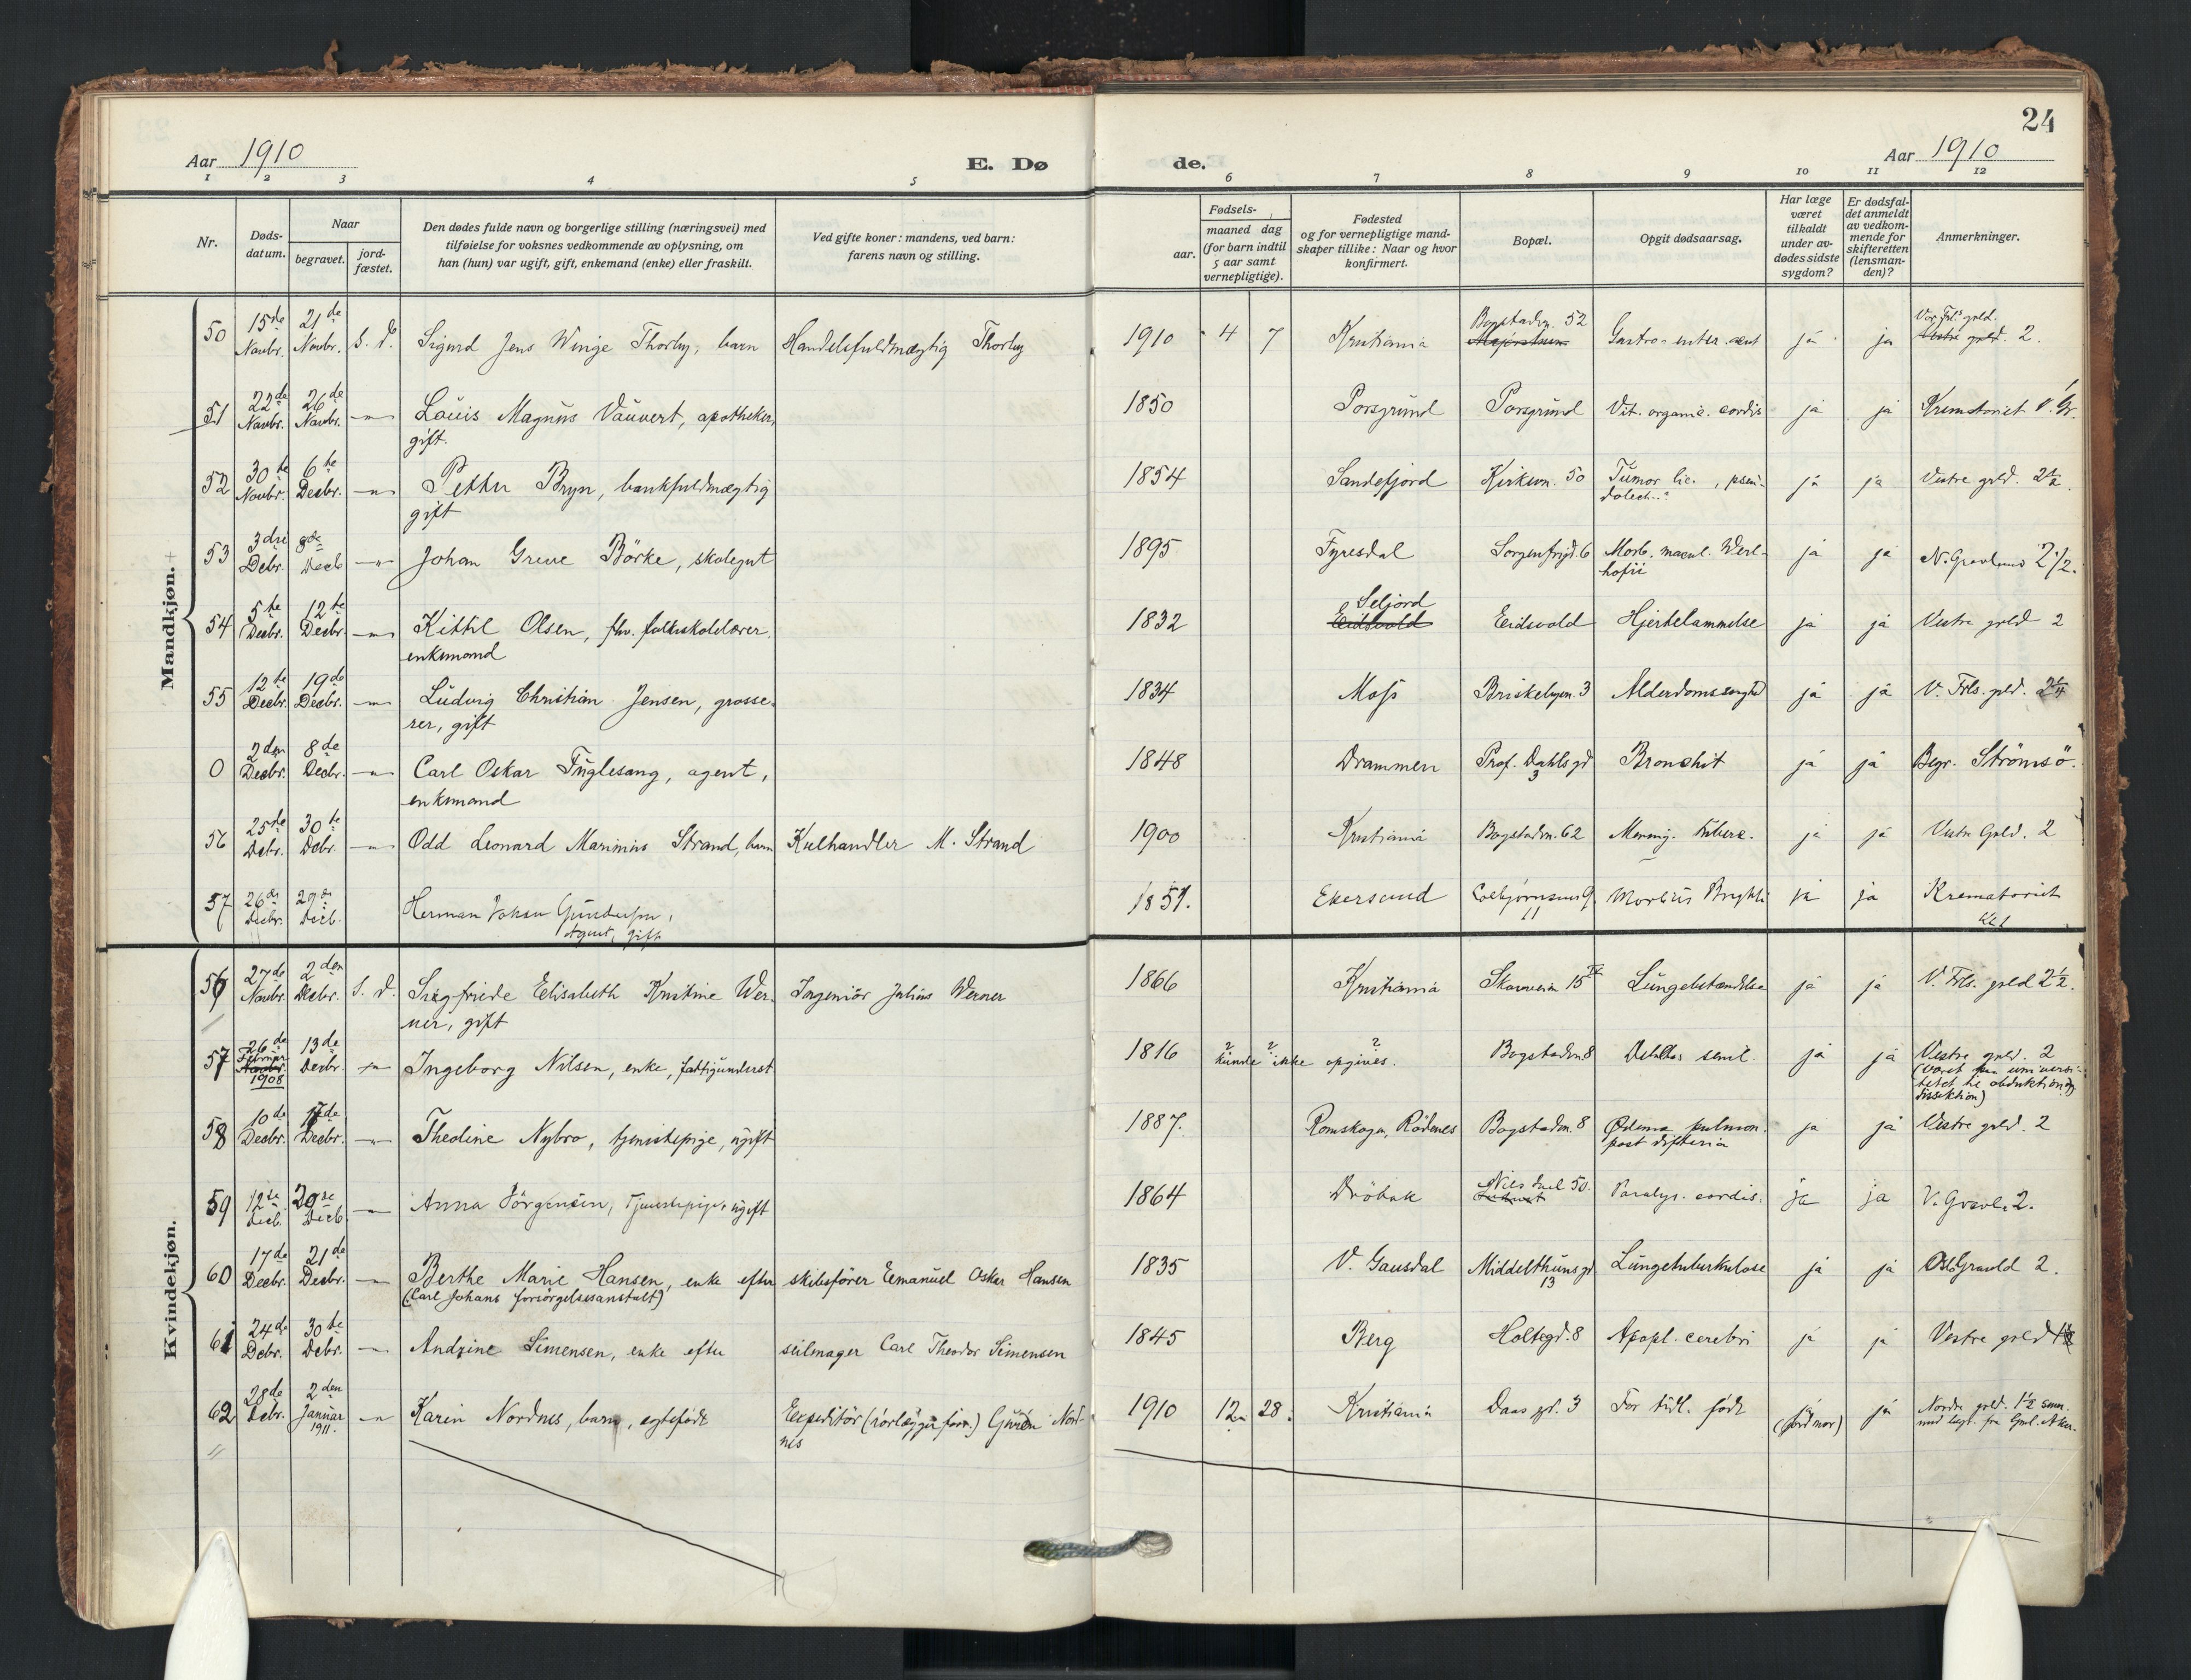 24
Aar 1910
E. Dø
de.
Aar 1910
1 2 3 4 5 6 7 8 9 10 11 12
Nr.
Døds-
datum.
Naar
begravet.
jord-
fæstet.
Den dødes fulde navn og borgerlige stilling (næringsvei) med
tilføielse for voksnes vedkommende av oplysning, om
han (hun) var ugift, gift, enkemand (enke) eller fraskilt.
Ved gifte koner: mandens, ved barn:
farens navn og stilling.
Fødsels-
aar.
maaned dag
(for barn indtil
5 aar samt
vernepligtige).
Fødested
og for vernepligtige mand-
skaper tillike: Naar og hvor
konfirmert.
Bopæl.
Opgit dødsaarsag.
Har læge
været
tilkaldt
under av-
dødes sidste
sygdom?
Er dødsfal-
det anmeldt
av vedkom-
mende for
skifteretten
(lensman-
den)?
Anmerkninger.
Mandkjøn.
50 15de Novbr. 21de Novbr. s. d. Sigurd Jens Winge Thorby, barn Handelsfuldmægtig Thorby 1910 4 7 Kristiania Bogstadvn. 52 Gastro-enter. acut ja ja Vor Frls grld. 2.
51 22de Novbr. 26de Novbr. -"- Louis Magnus Vauvert, apotheker, 1850 Porsgrund Porsgrund Vit. organic. cordis ja ja Krematoriet V. Gr.
gift.
52 30te Novbr. 6te Decbr. -"- Petter Bryn, bankfuldmægtig 1854 Sandefjord Kirkevn. 50 Tumor ja ja Vestre grld. 2½.
gift
53 3die Debr. 8de Decb -"- Johan Greve Börke, skolegut 1895 Fyresdal Sorgenfrigd. 6 Morb. macul. Werl- ja ja N. Gravlund 2½.
hofii
54 5te Decbr. 12te Decbr. -"- Kittil Olsen, fhv. folkeskolelærer. 1832 Seljord Eidsvold Eidsvold Hjertelammelse ja ja Vestre grld 2
enkemand
55 12te Decbr. 19de Decbr. -"- Ludvig Christian Jensen, grosse- 1834 Moss Briskebyvn. 3 Alderdomssvaghed ja ja V. Frls. grld.
rer, gift
0 2den Decbr. 8de Decbr. -"- Carl Oskar Fuglesang, agent, 1848 Drammen Prof. Dahlsgd 3 Bronchit ja ja Begr. Strömsö.
enkemand
56 25de Debr. 30te Debr. -"- Odd Leonard Marinius Strand, barn Kulhandler M. Strand 1900 Kristiania Bogstadvn. 62 Mening. tuberc. ja ja Vestre Grld. 2
57 26de Decbr. 29de Decb. Herman Johan Gundersen, 1851. Ekersund Colbjørnsensg. 11 Morbus Brightii ja ja Krematoriet
Agent, gift
Kvindekjøn.
56 27de Novbr. 2den Decbr. s. d. Siegfriede Elisabeth Kristine Wer- Ingeniör Julius Werner 1866 Kristiania 15 Lungebetændelse ja ja V. Frls. grld 2½.
ner, gift
57 26de Februar 1908 13de Decbr. -"- Ingeborg Nilsen, enke, fattigunderst. 1816 ? ? ? kunde ikke opgives. Bogstadvn 8 Debilitas senil. ja ja Vestre grld. 2
(været paa universi-
tetet til obduktion og
dissektion)
58 10de Decbr. 17de Decbr. -"- Theoline Nybro, tjenestepige, ugift 1887. Romskogn, Rödenes Bogstadvn. 8 Ødema pulmon. ja ja Vestre grld. 2
post difteria
59 12te Decb. 20de Decb -"- Anna Jörgensen, Tjenestepige, ugift 1864 Dröbak Niels Juel 50. Paralys. cordis. ja ja V. Gravl. 2.
60 17de Decbr. 21de Decbr. -"- Berthe Marie Hansen, enke efter skibsfører Emanuel Oskar Hansen 1835 V. Gausdal Middelthunsgd 13 Lungetuberkulose ja ja Oslo Gravld 2.
(Carl Johans forsörgelsesanstalt)
61 24de Debr. 30te Debr. -"- Andrine Simensen, enke efter seilmager Carl Theodor Simensen 1845 Berg Holtegd. 8 Apopl. cerebri ja ja Vestre grld
62 28de Debr. 2den Januar 1911. -"- Karin Nordnes, barn, egtefödt Expeditör (rörlægger) Nord- 1910 12 28. Kristiania Daas gd. 3 For tidl. født ja (jordmor) ja Nordre grld. 1½
nes